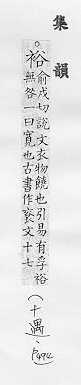 集韻
○裕
俞戍切說文衣物饒也引易有孚裕
無咎一曰寬也古書作 文十七
(十遇、P494)